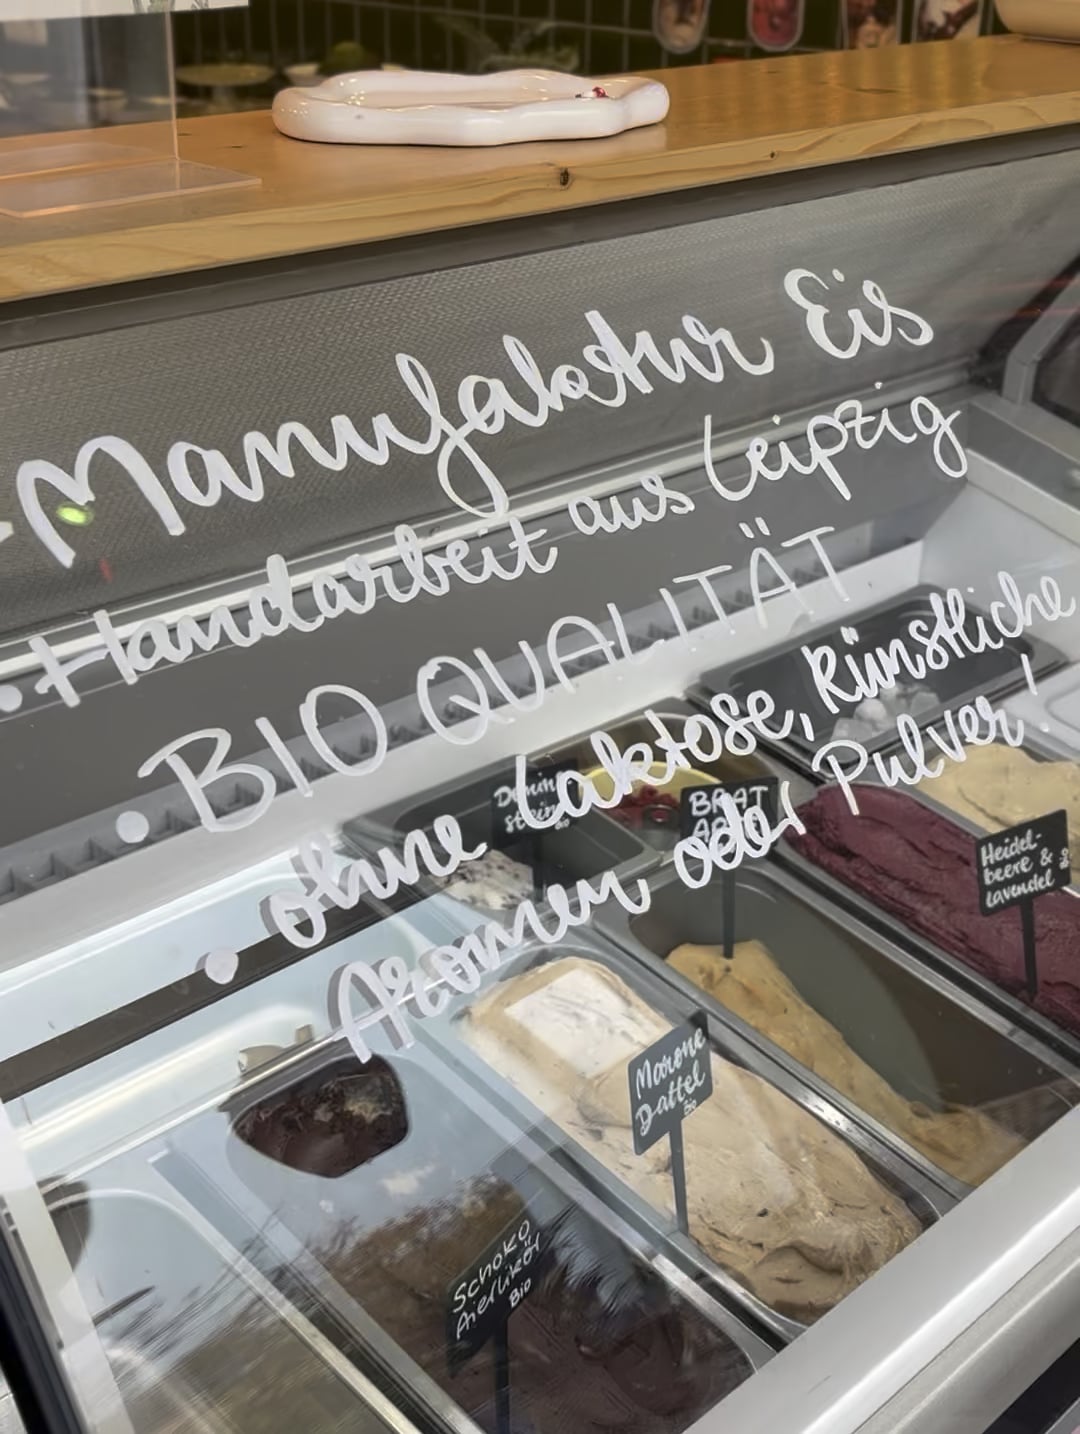 Manufaktur Eis
• Handarbeit aus Leipzig
• BIO QUALITÄT
• ohne Laktose, Künstliche
Aromen oder Pulver!
Domino
stein
Bio
BRAT
Heidel-
beere & Bio
Lavendel
Marone
Dattel
Bio
Schoko
Aierlikör
Bio